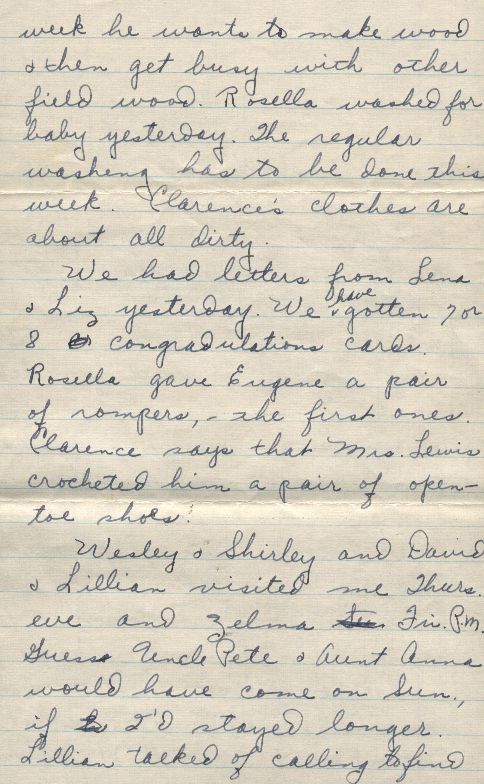 week he wants to make wood
& then get busy with other
field wood. Rosella washed for
baby yesterday. The regular
washeng has to be done this
week. Clarence's clothes are
about all dirty.
We had letters from Lena
& Liz yesterday. We have gotten 7 or
8 congradulations cards.
Rosella gave Eugene a pair
of rompers, - the first ones.
Clarence says that Mrs. Lewis
crocheted him a pair of open-
toe shoes.
Wesley & Shirley and David
& Lillian visited me Thurs.
eve and Zelma Fri. P.M.
Guess Uncle Pete & Aunt Anna
would have come on Sun.,
if I'd stayed longer.
Lillian talked of calling to find